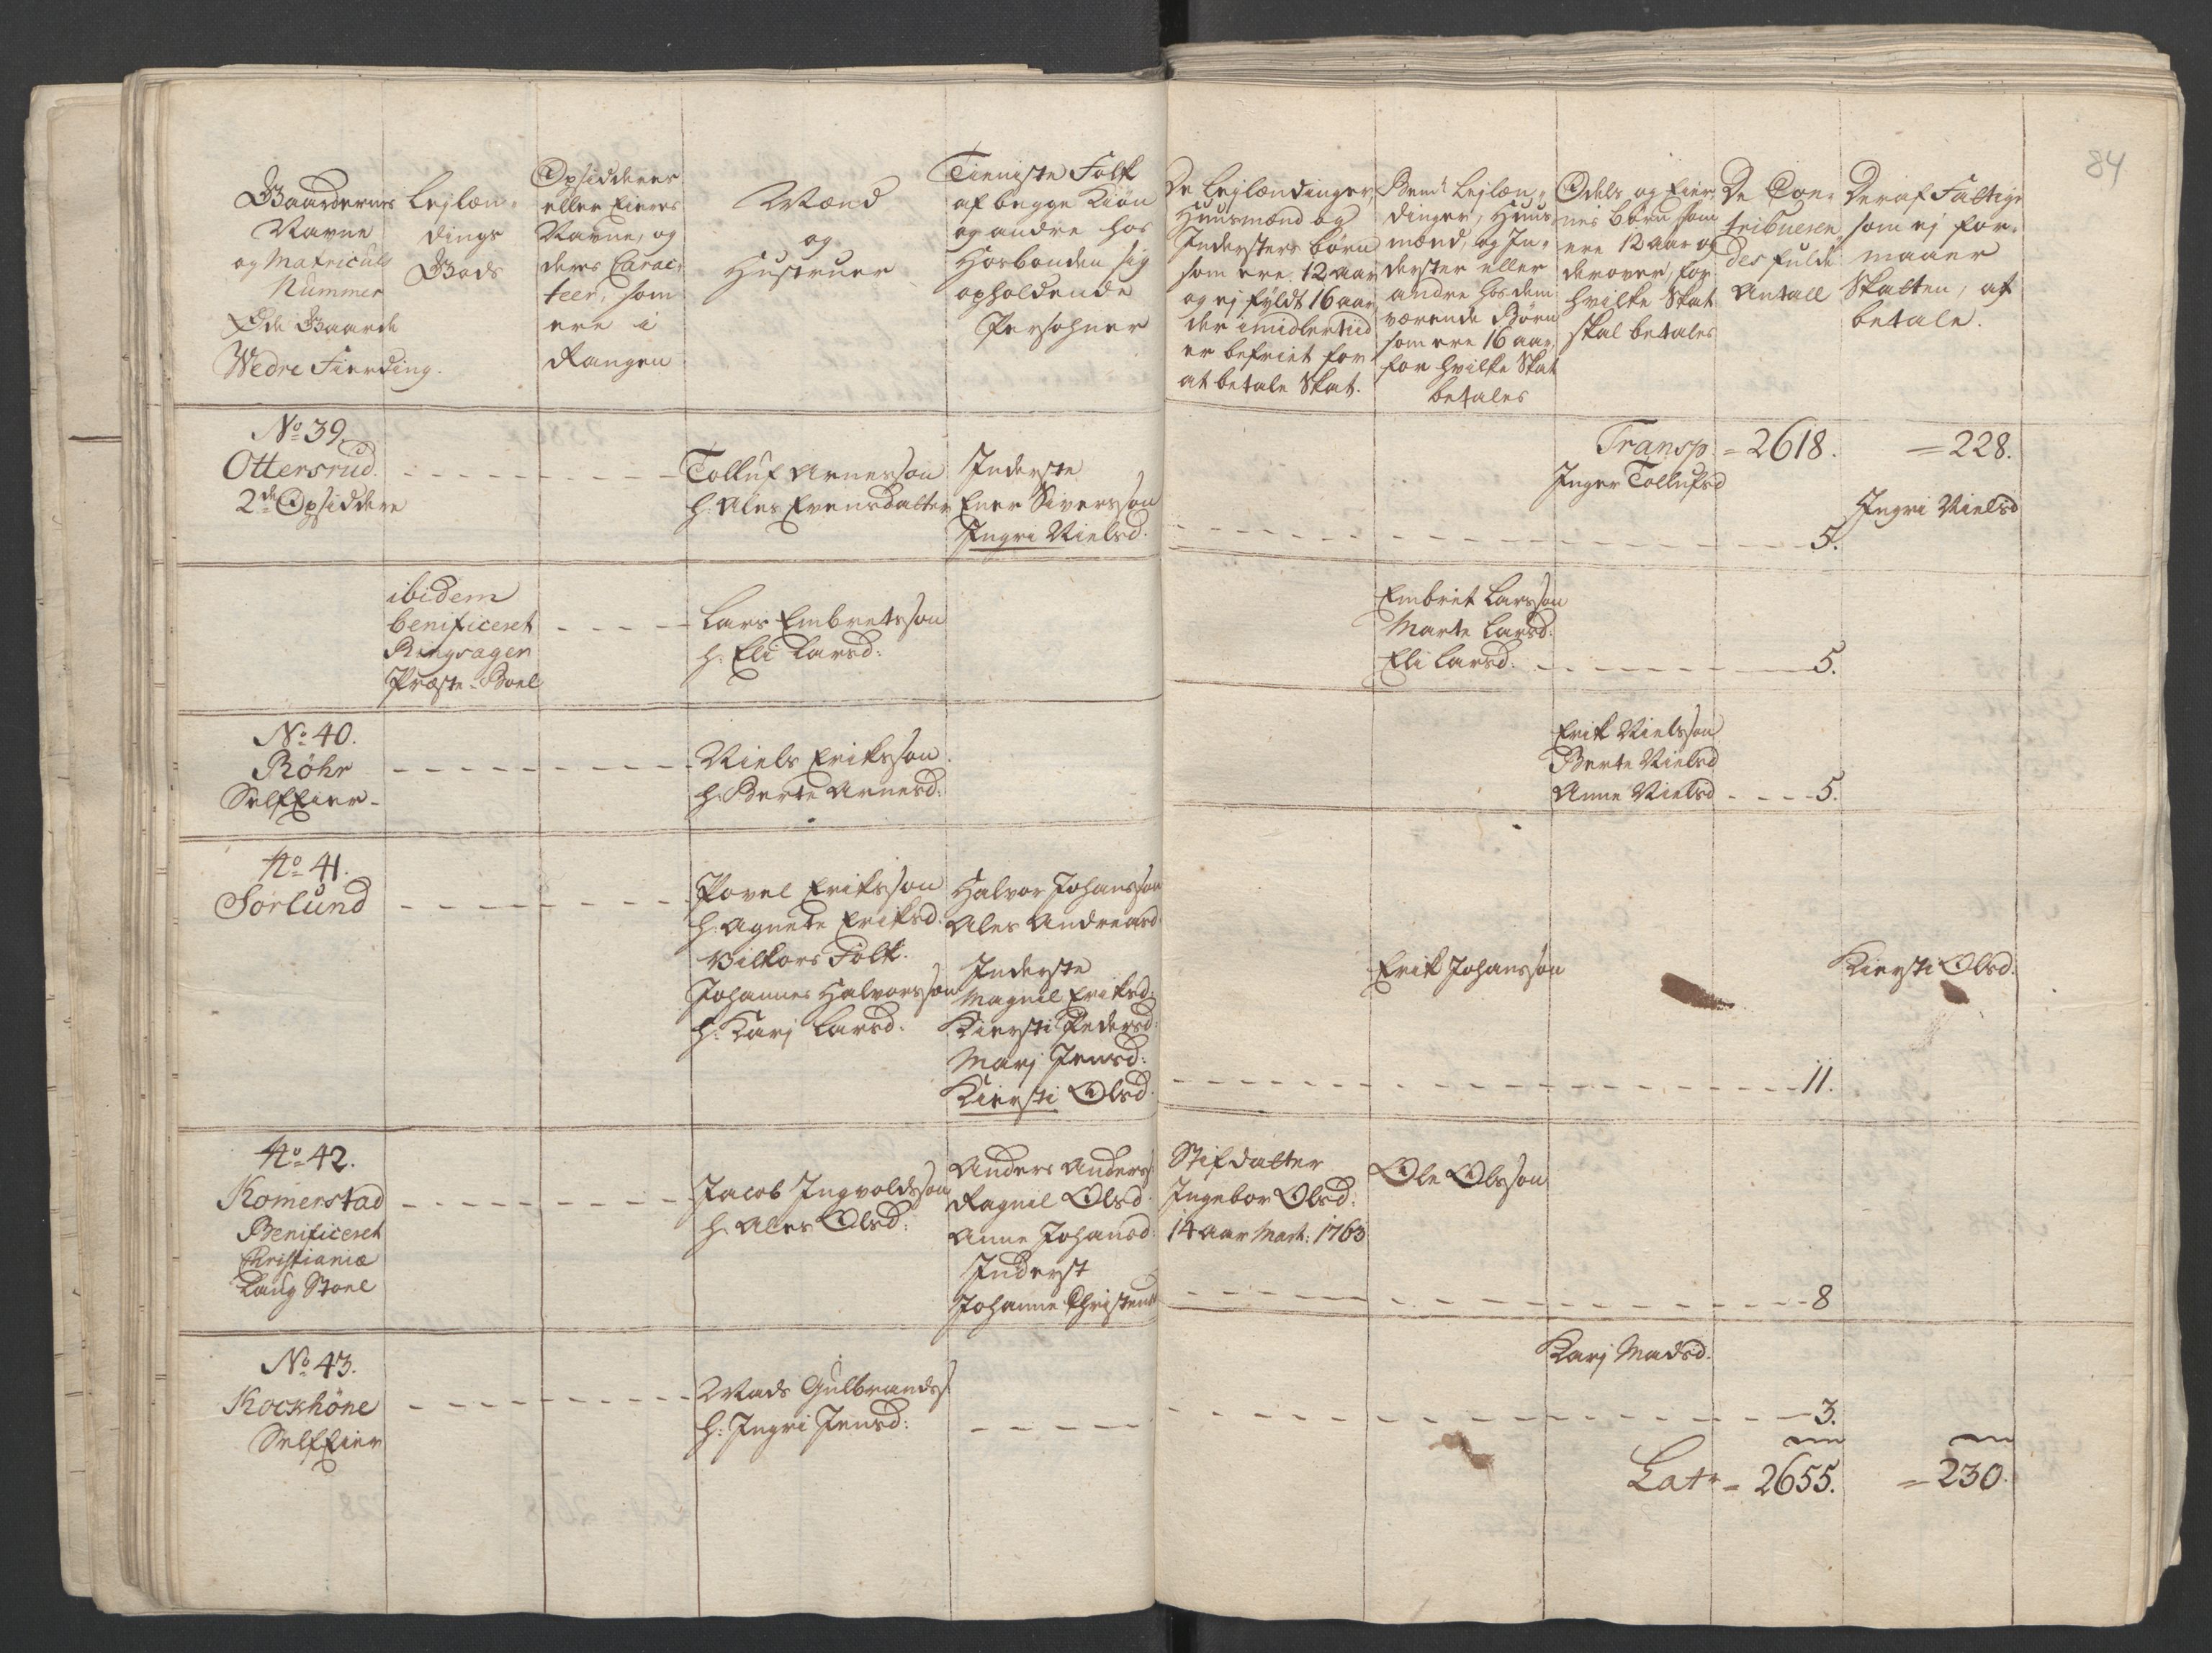 84
Gaardernes
Navne
og Matriculs
Nummer
Øde Gaarde
Wedre Fierding.
Lejlæn-
dings
Gods
Opsiddernes
eller Eiernes
Navne, og
deres Carac-
teer, som
ere i
Rangen
Mænd
og
Hustruer
Tieniste Folk
af begge Kiøn
og andre hos
Hosbonden sig
opholdende
Persohner
De Lejlændinger,
Huusmænd og
Indersters børn
som ere 12 aar
og ej fyldt 16 aar
der imidlertiid
er befriet for
at betale Skat.
Bemte Lejlæn-
dinger, Huus-
mænd, og In-
derster eller
andre hos dem
værende Børn
som ere 16 aar,
for hvilke Skat
betales
Odels og Eier-
nes børn som
ere 12 aar og
derover, for
hvilke Skat
skal betales
De Con-
tribueren-
des fulde
Antall
Deraf Fattige
som ej for-
maaer
Skatten, at
betale.
Transp. = 2618. = 228.
No 39.
Ottersrud
2de Opsiddere
Tolluf Arnesson
h: Ales Evensdatter
Inderste
Ener Siversson
Ingri Nielsd.
Inger Tollufsd
Ingri Nielsd
5.
ibidem
benificeret
Ringsager
Præste-Boel
Lars Embretsson
h: Eli Larsd:
Embret Larsson
Marte Larsd:
Eli Larsd. 5.
No 40.
Röhr
SelfEier
Niels Eriksson
h: Berte Arnesd:
Erik Nielsson
Berte Nielsd
Anne Nielsd 5.
No 41.
Sorlund
Povel Eriksson
h: Agnete Eriksd:
Vilkors Folk.
Johannes Halvorsson
h: Karj Larsd:
Halvor Johansson
Ales Andreasd
Inderste
Magnil Eriksd:
Kiersti Pedersd:
Marj Jensd:
Kiersti Olsd.
Erik Johansson
Kiersti Olsd.
11.
No 42.
Komerstad
Benificeret
Christianiæ
Laug Stoel
Jacob Ingvoldsson
h: Ales Olsd:
Anders Anders:
Ragnil Olsd.
Anne Johansd:
Inderst
Johanne Christensd
Stifdatter
Ingebor Olsd:
14 aar Mart: 1763
Ole Olsson
8
No 43.
Kockhöne
SelfEier
Mads Gulbrands:
h: Ingri Jensd:
Karj Madsd.
3.
Latr = 2655. = 230.